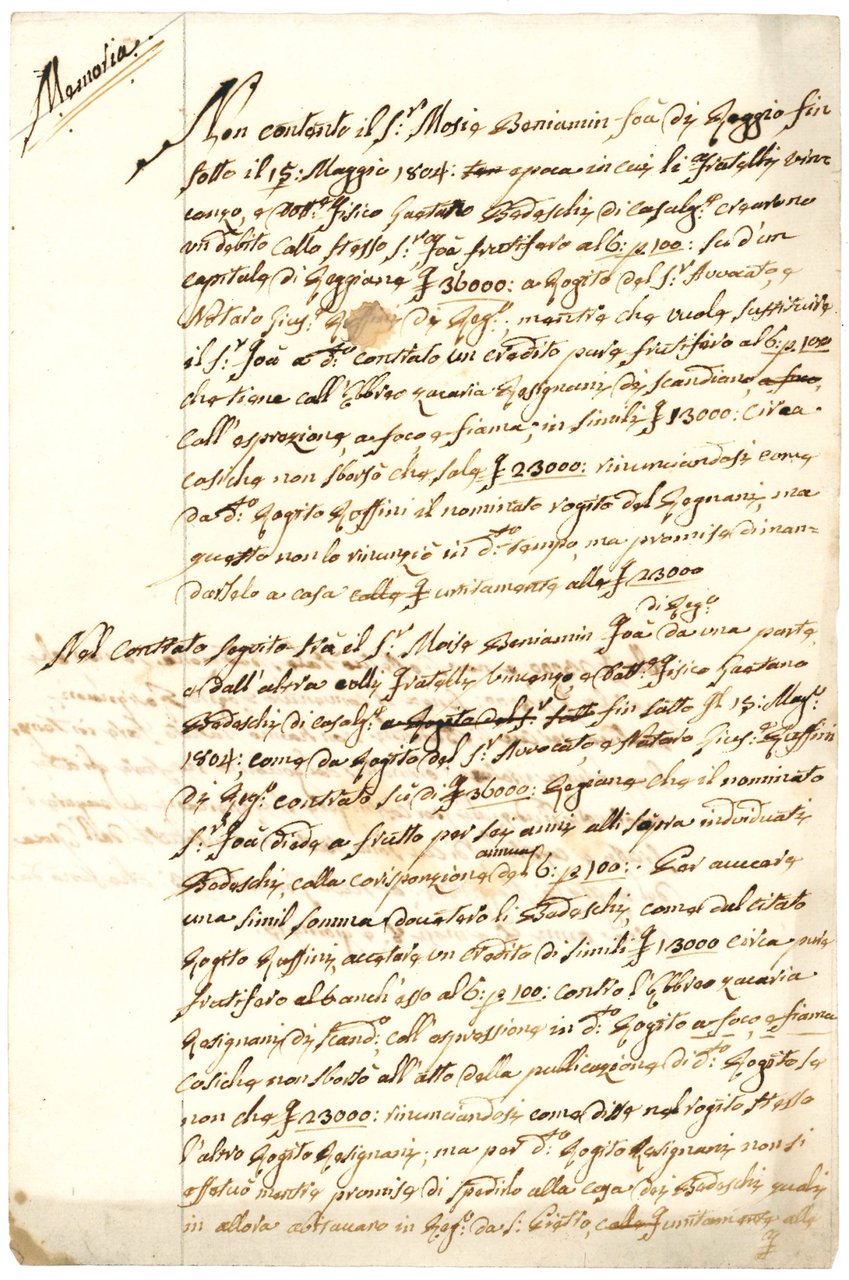 Memoria.
Non contento il S.r Mosie Beniamin Foà di Reggio fin
sotto il 15: Maggio 1804: epoca in cui li Fratelli Vin-
cenzo, e Dott.e Fisico Gaetano Bedeschi di Casalg.o crearono
un debito collo stesso S.r Foà frutifero al 6: p 100: su d'un
capitale di Reggiane £ 36000: a Rogito del S.r Avvocato, e
Notaro Gius.e di Reg.o, mentre che vuole sustituire
il S.r Foà a d.to contrato un credito pure frutifero al 6: p 100
che tiene coll'Ebbreo Zacaria Resignani di Scandiano, a foco,
coll'espresione, a foco e fiama, in simili £ 13000: circa
cosiche non sborsò che sole £ 23000: rinunciandosi come
da d.to Rogito Ruffini il nominato rogito del Regnani, ma
questo non lo rinunziò in d.to tempo, ma promise di man=
darselo a casa colle £ unitamente alle £ 23000
di Reg.o
Nel Contrato seguito trà il S.r Moise Beniamin Foà da una parte,
e dall'altra colli Fratelli Vincenzo e Dott.e Fisico Gaetano
Bedeschi di Casalg.o a Rogito del S.r sotto fin sotto Il 15: Mag.o
1804; come da Rogito del S.r Avvocato, e Notaro Gius.e Ruffini
di Reg.o contrato sù di £ 36000: Regiane che il nominato
S.r Foà diede a frutto per sei anni alli sopra individuati
Bedeschi, colla corisponzione del 6: p 100:. Per
annua
una simil somma dovetero li Bedeschi, come dal citato
Rogito Ruffini, accetare un credito di simili £ 13000 circa pure
frutifero al 6 anch'esso al 6: p 100: contro l'Ebbreo Zacaria
Resignani di Scand.o, coll'espressione in d.to Rogito a foco, e fiama
Cosiche non sborsò all'atto della publicazione di d.to Rogito se
non che £ 23000: rinunciandosi come disse nel rogito stesso
l'altro Rogito Resignani, ma per d.to Rogito Resignani non si
efetuò mentre promise di spedirlo alla casa dei Bedeschi quali
in allora abitavano in Reg.o da S. colle £ unitamente alle
£